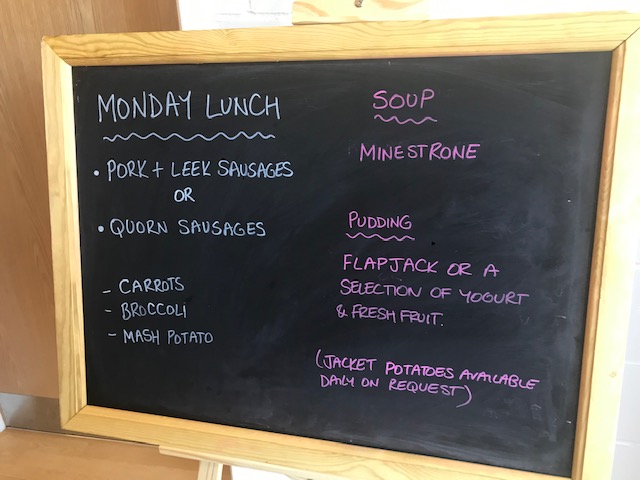 MONDAY LUNCH
• PORK + LEEK SAUSAGES
OR
• QUORN SAUSAGES
- CARROTS
- BROCCOLI
- MASH POTATO
SOUP
MINESTRONE
PUDDING
FLAPJACK OR A
SELECTION OF YOGURT
& FRESH FRUIT.
(JACKET POTATOES AVAILABLE
DAILY ON REQUEST)